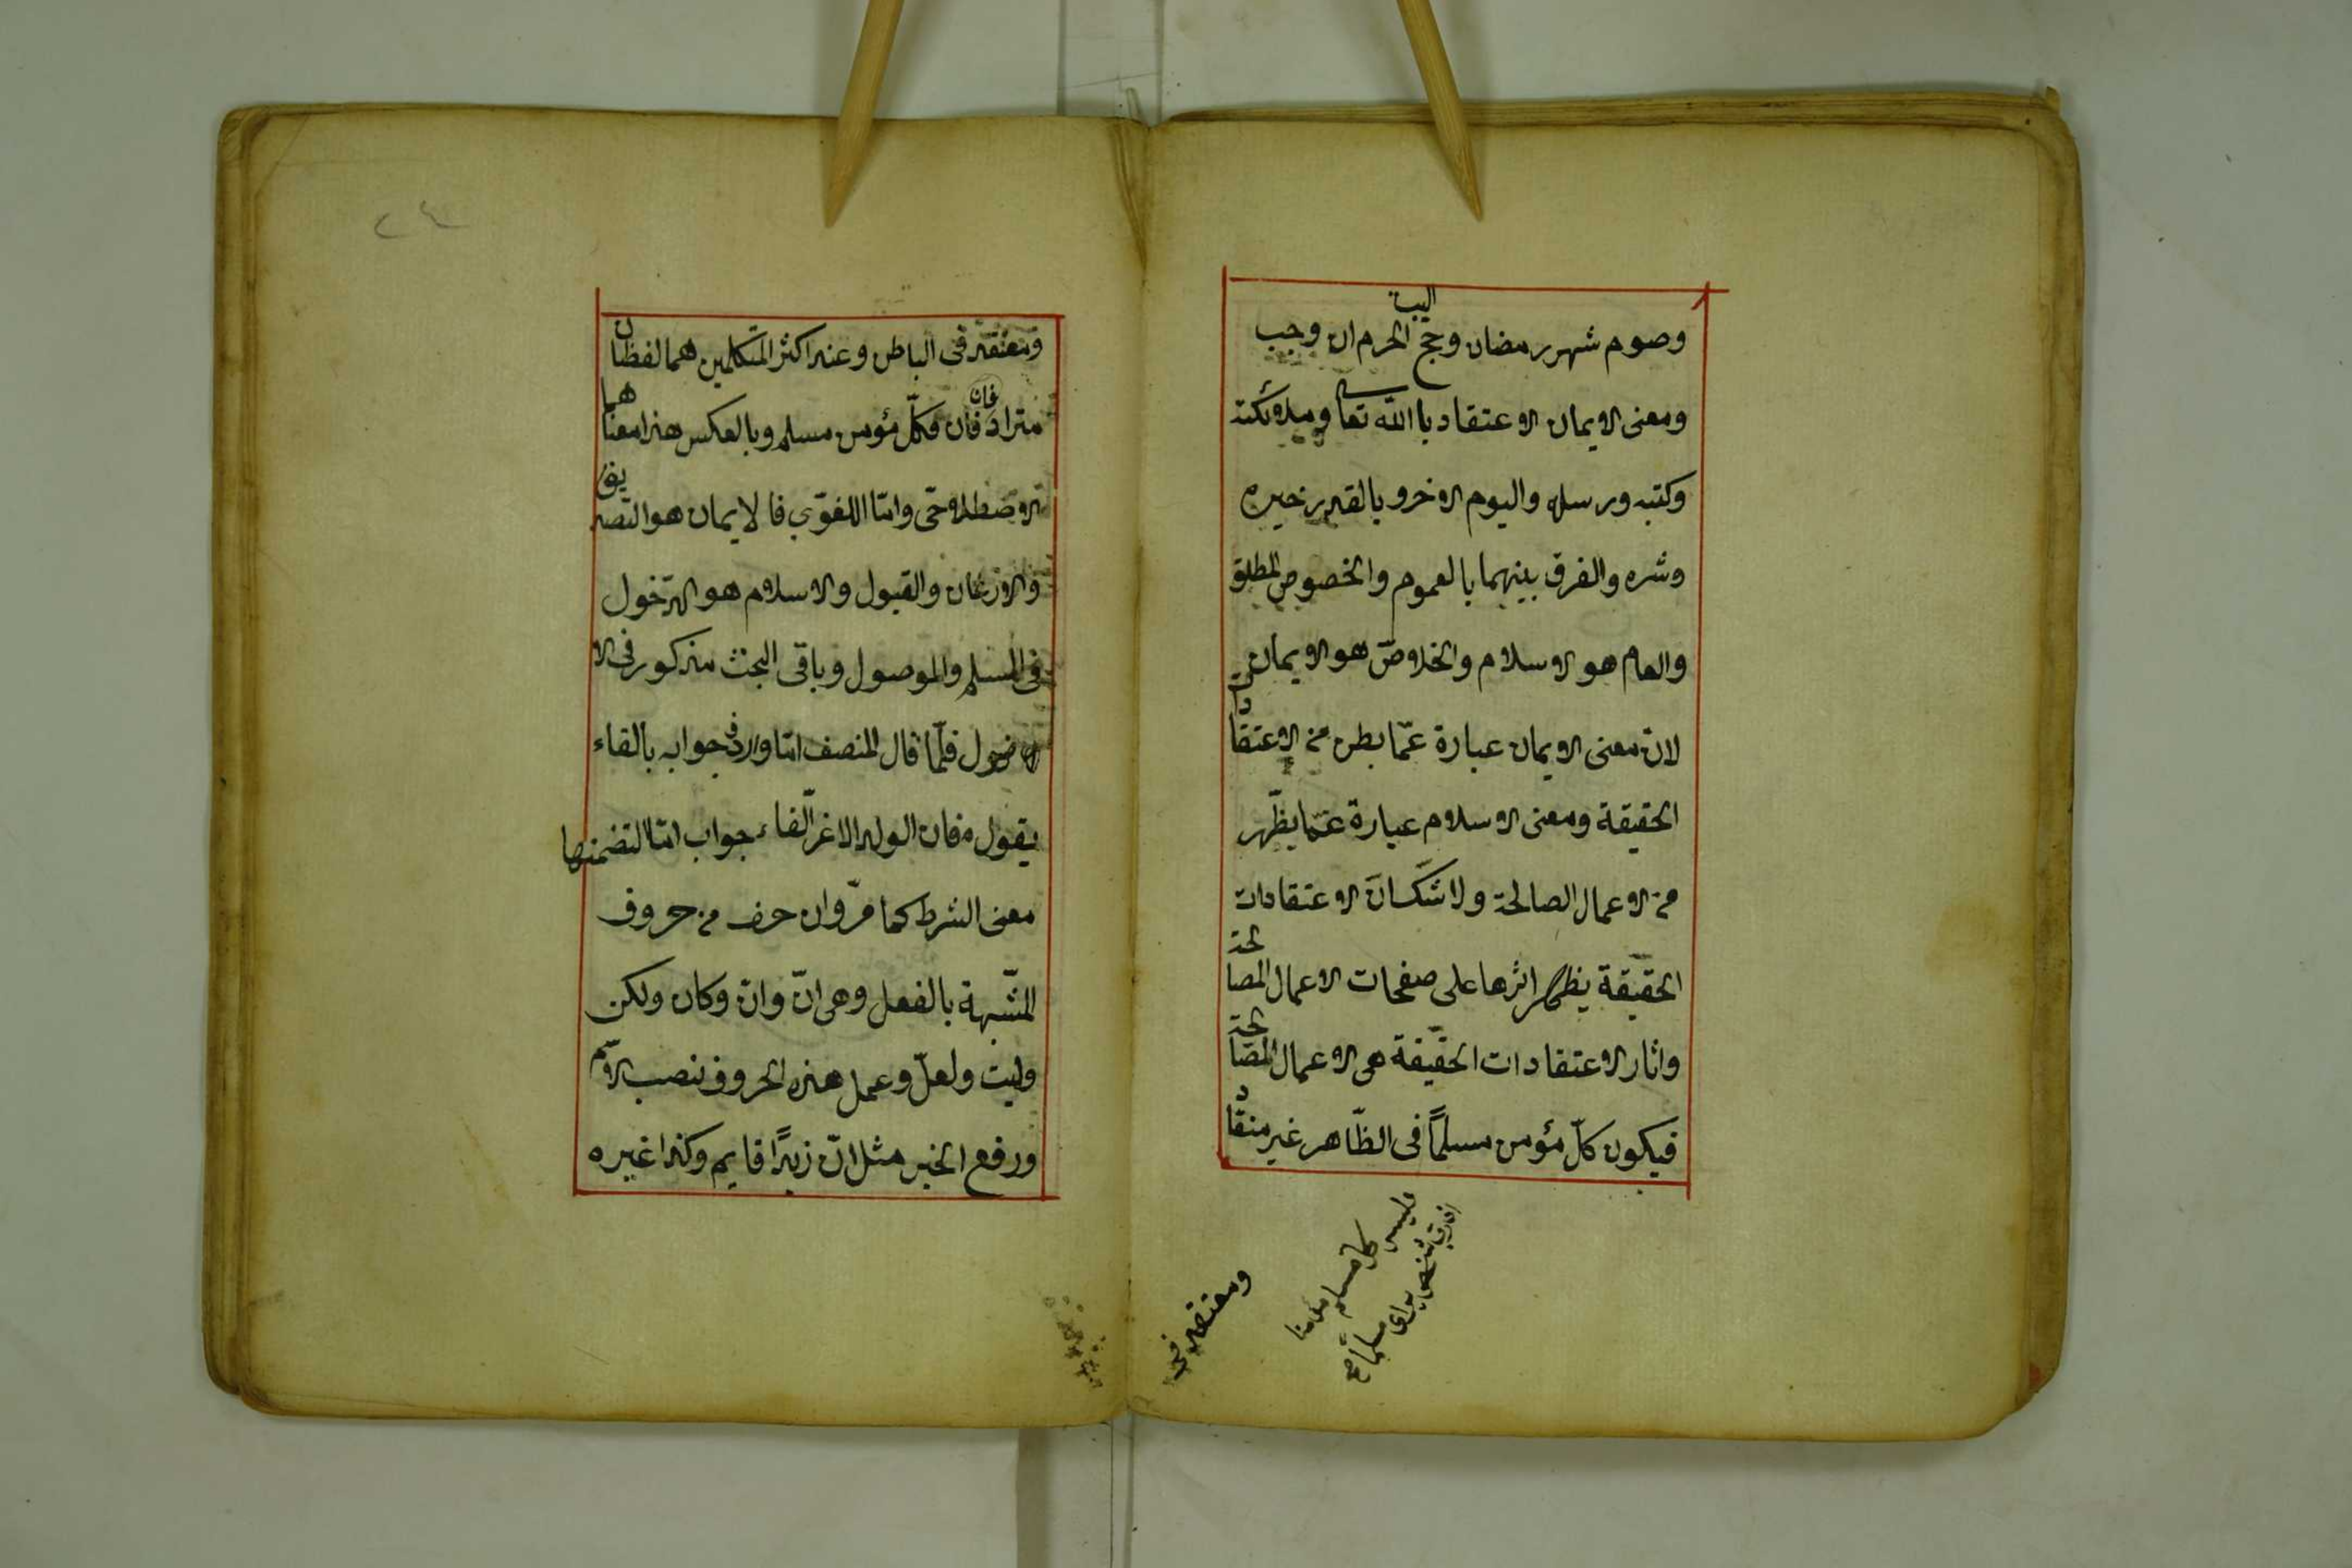 البيت
وصوم شهر رمضان وحج الحرم ان وجب
ومعنى الايمان الاعتقاد باالله تعالى وملائكته
وكتبه ورسله واليوم الاخر وبالقدر خيره
وشره والفرق بينهما بالعموم والخصوص المطلق
والعام هو الاسلام والخلاصّ هو الايمان
لانّ معنى الايمان عبارة عمّا بطن من الاعتقاد
الحقيقة ومعنى الاسلام عبارة عمّا يظّهر
من الاعمال الصالحة ولا شكّ انّ الاعتقادات
الحقيقة يظهر اثرها على صفحات الاعمال الصالحة
واثار الاعتقادات الحقيقة هى الاعمال الصالحة
فيكون كلّ مؤمن مسلماً فى الظّاهر غير منقاد
فليس كل مسلم مؤمنا
ومعتقد فى
٢٤
ومعتقد فى الباطن وعند اكثر المتكلمين هما لفظان
مترادفان فكلّ مؤمن مسلم وبالعكس هذا معناهما
الاصطلاحى وامّا اللغوّي فالايمان هو التصديق
والاذعان والقبول والاسلام هو الدّخول
فى المسلم والموصول وباقى البحث مذكور فى الا
صول فلمّا قال المنصف امّا وارد فى جوابه بالفاء
يقول فان الولد الاغرّ الفاء جواب امّا لتضمنها
معنى الشرط كما مرّ وان حرف من حروف
المشّبهة بالفعل وهى انّ وانّ وكان ولكن
وليت ولعلّ وعمل هذه الحروف نصب الاسم
ورفع الخبر مثل انّ زيدًا قايم وكذا غيره